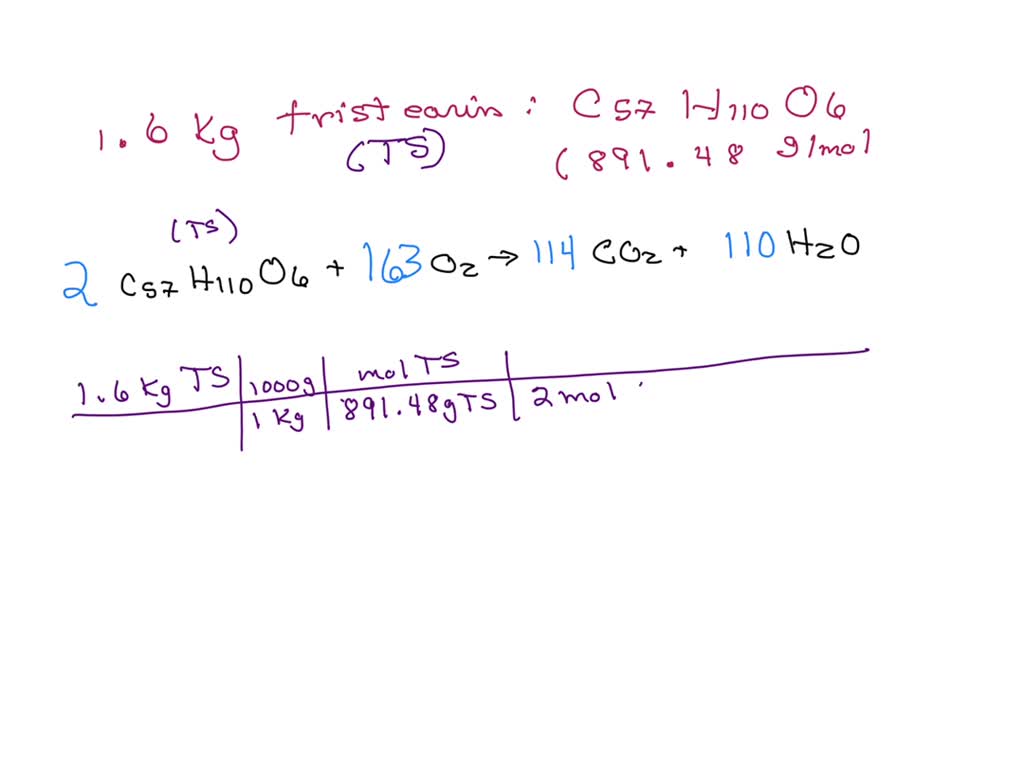 1.6 kg tristearin : C57 H110 O6
(TS) (891.48 g/mol
(TS)
2 C57 H110 O6 + 163 O2 → 114 CO2 + 110 H2O
1.6 kg TS | 1000g | mol TS |
1 kg | 891.48 g TS | 2 mol